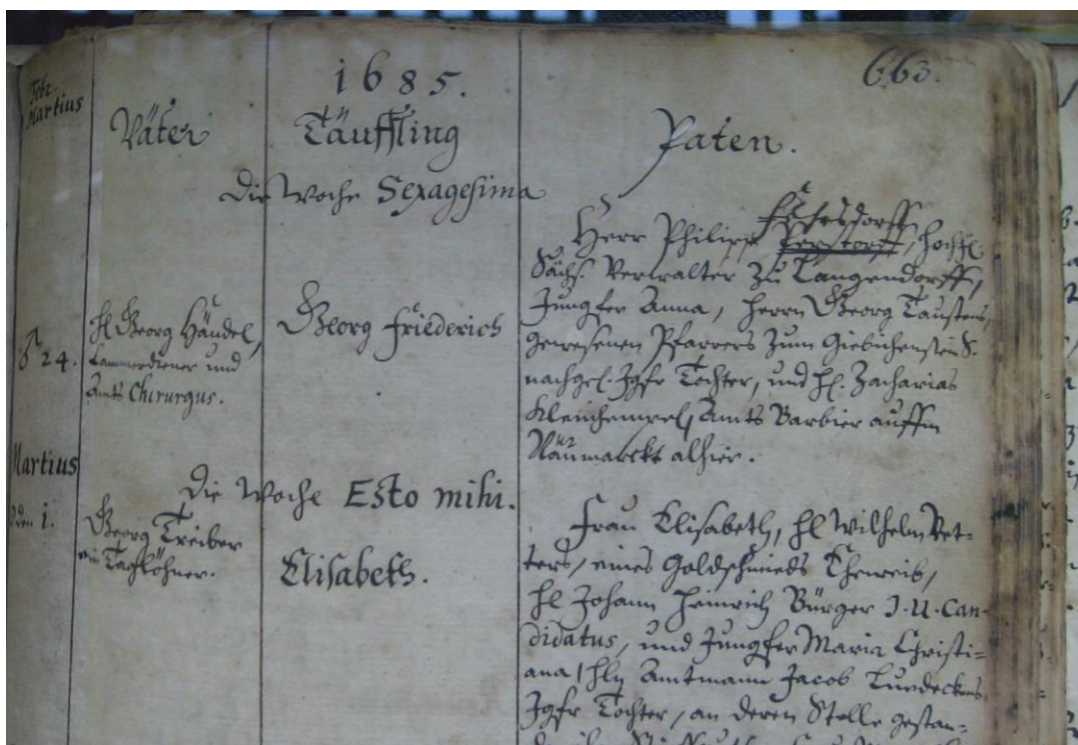 1685.
663.
Febr.
Martius
Väter
Täuffling
Paten.
Die Woche Sexagesima
♂ 24.
H. Georg Händel,
Cammerdiener und
Amts Chirurgus.
Georg Friederich
Fehrsdorff
Herr Philipp, Hochf.
Sächs. Verwalter zu Langendorff,
Jungfer Anna, Herrn Georg Taustens,
gewesenen Pfarrers zum Giebichenstein S.
nachgel. Jgfr Tochter, und H. Zacharias
Kleinhempel, Amts Barbier auffm
Näumarckt alhier.
Martius
den 1.
Die Woche Esto mihi.
Georg Treiber
ein Taglöhner.
Elisabeth.
Frau Elisabeth, H. Wilhelm Vet-
ters, eines Goldschmieds Eheweib,
H. Johann Heinrich Bürger J. U. Can-
didatus, und Jungfer Maria Christi-
ana, Hln Amtmann Jacob
Jgfr Tochter, an deren Stelle gestan-